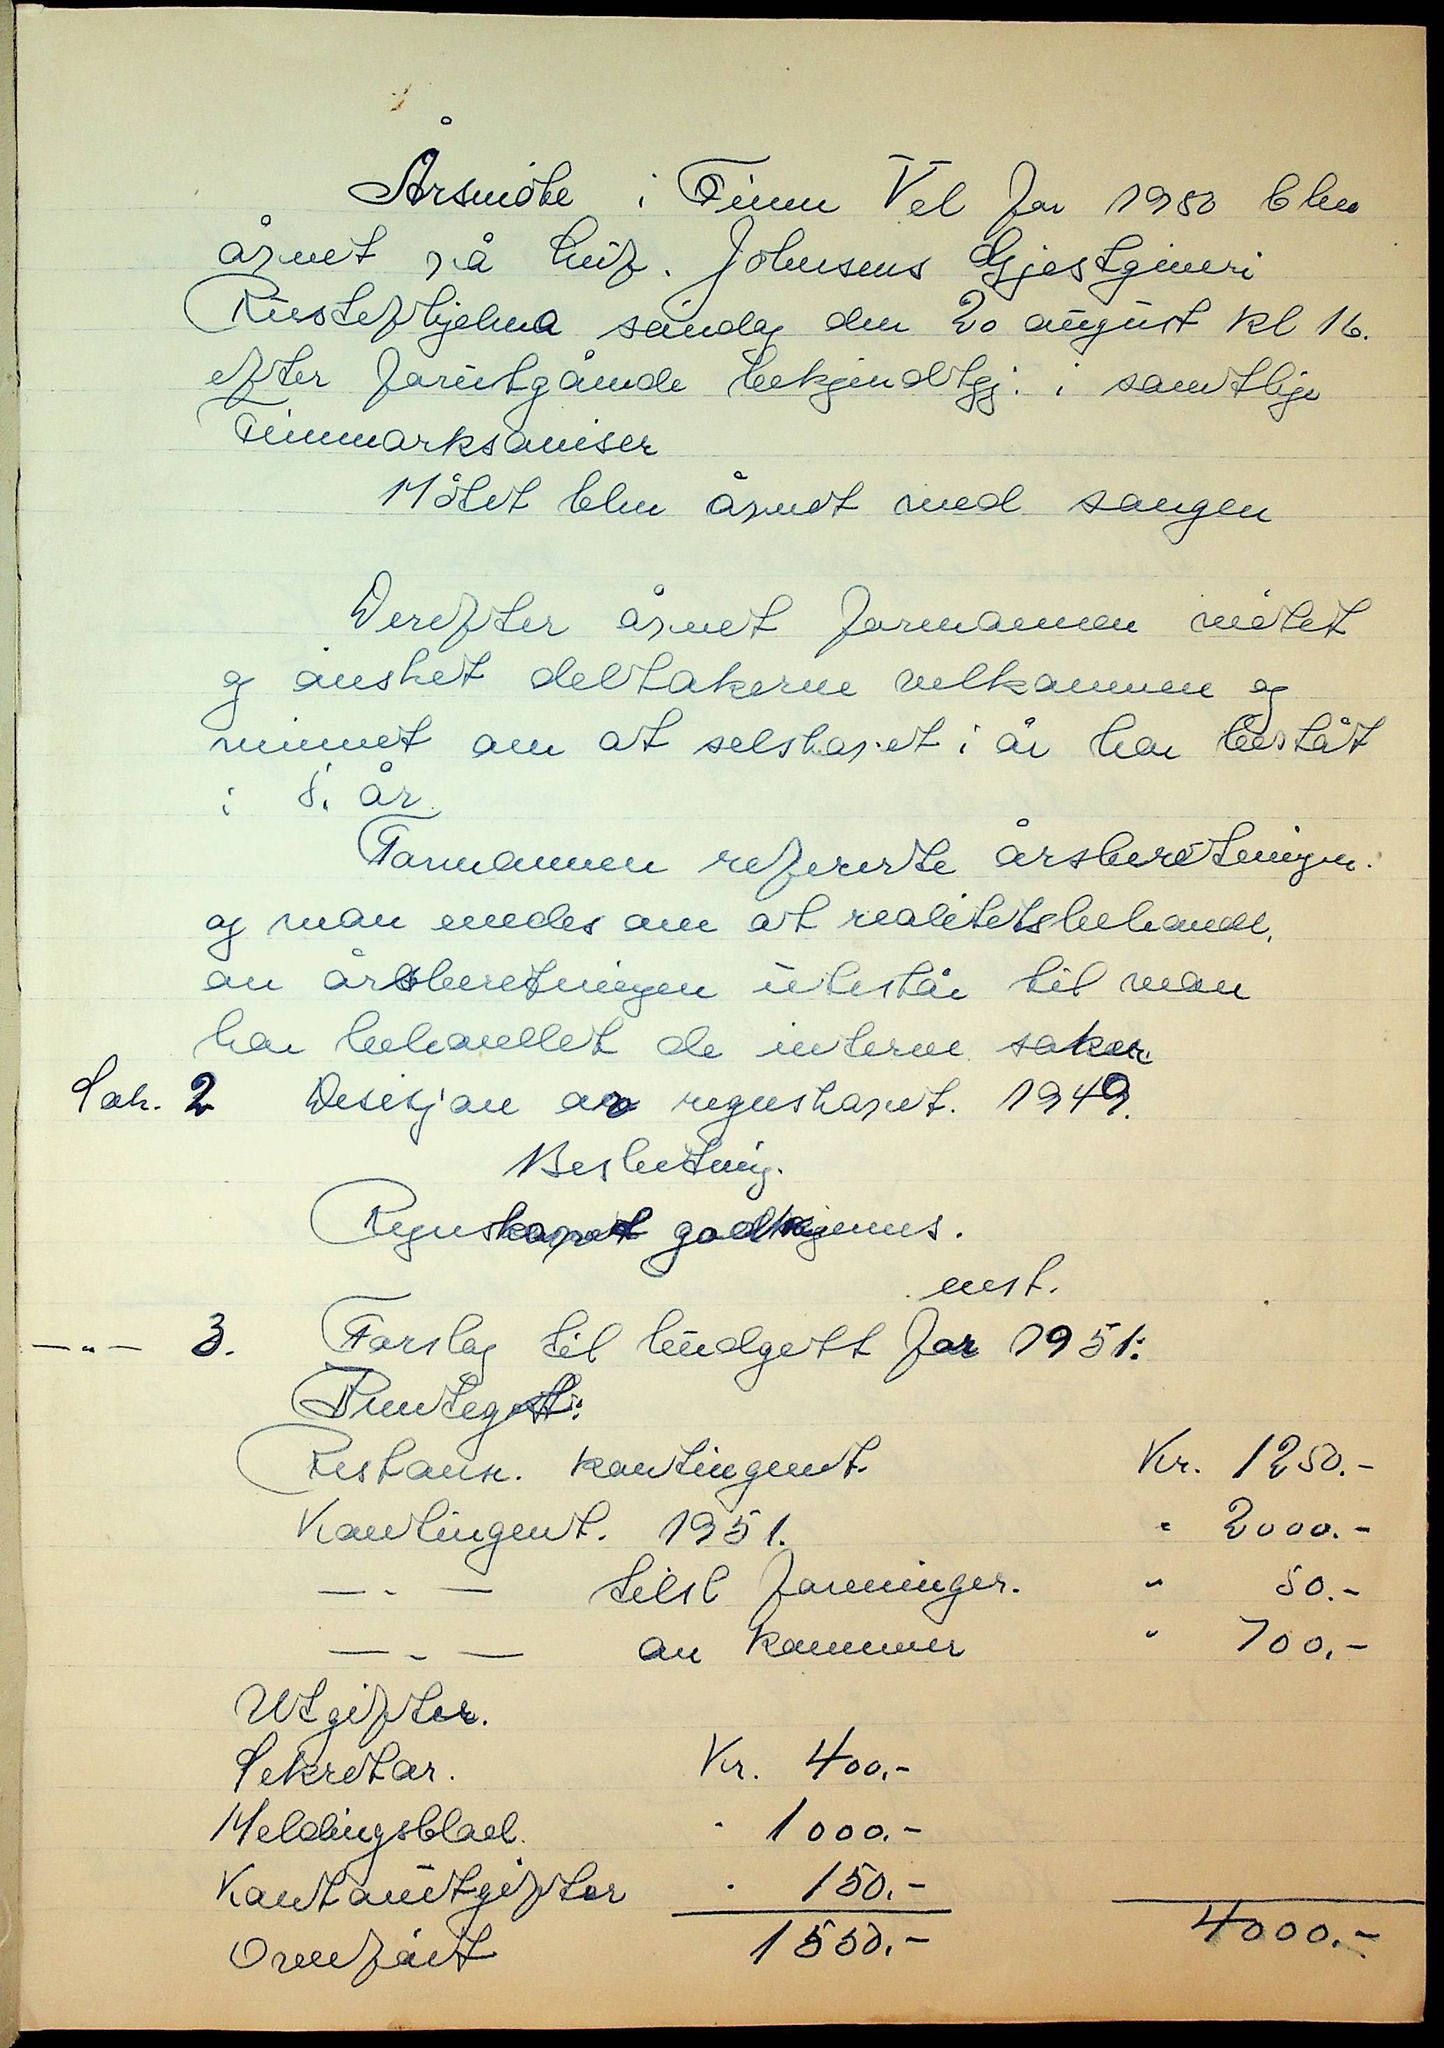 Årsmöte i Finnm Vel for 1950 blev
åpnet på Luf. Johnsens Gjestgiveri
Rustefhjelma söndag den 20 august kl 16.
efter forutgående bekjendtgj. i samtlige
Finnmarksaviser
Mötet blev åpnet med sangen
Derefter åpnet formannen mötet
og önsket deltakerne velkommen og
minnet om at selskapet i år har bestått
i 5. år.
Formannen refererte årsberetningen.
og man enedes om at realitetsbehandl.
av årsberetningen utestår til man
har behandlet de interne saker.
Sak. 2 Desisjon av regnskapet. 1949.
Beslutning.
Regnskapet godkjennes.
enst.
—"— 3. Forslag til budgett for 1951:
Inntegt:
Restans. kontingent. Kr. 1250.-
Kontingent. 1951. " 2000.-
—"— tilsl foreninger. " 50.-
—"— av kommuner " 700.-
Utgifter.
Sekretær. Kr. 400.-
Meldingsblad. " 1000.-
Kontorutgifter " 150.-
Overfört 1550.- 4000.-